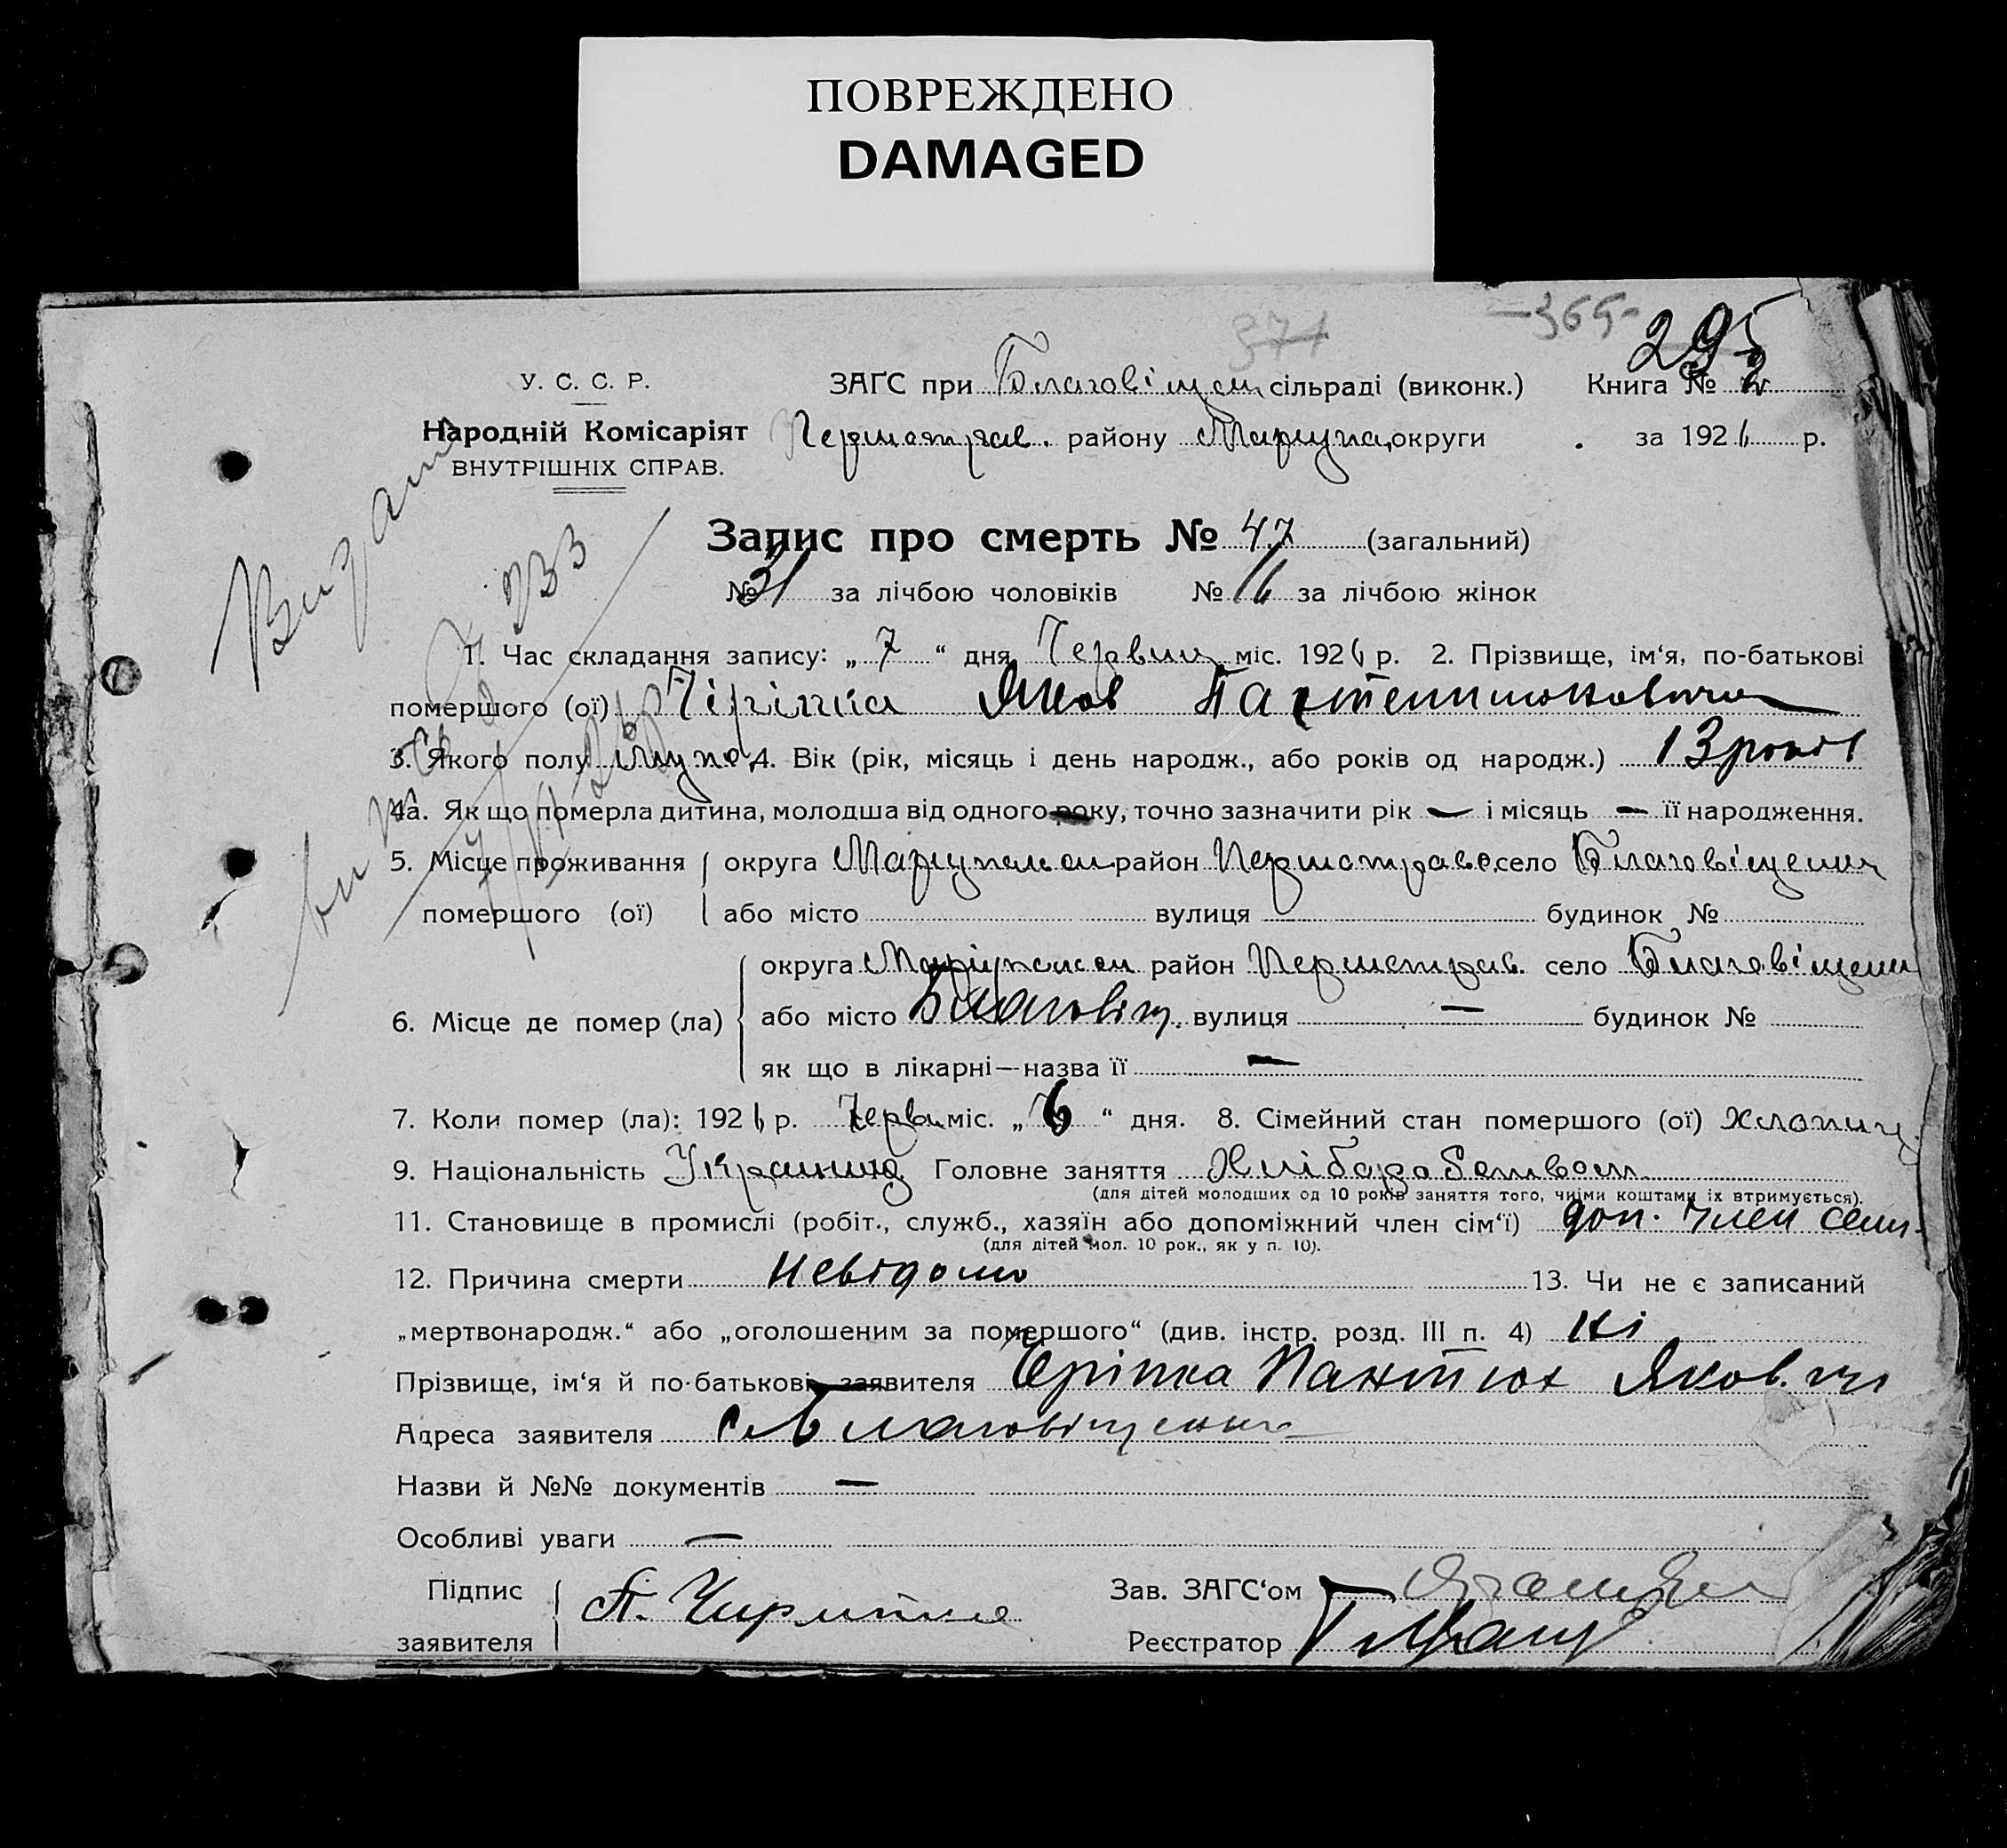 ПОВРЕЖДЕНО
DAMAGED
371
-365-
295
У. С. С. Р. ЗАҐС при Благовіщен сільраді (виконк.) Книга № 2
Народній Комісаріят Першотрав. району Маріупол округи за 1926 р.
ВНУТРІШНІХ СПРАВ.
Запис про смерть № 47 (загальний)
№ 31 за лічбою чоловіків № 16 за лічбою жінок
1. Час складання запису: „ 7 “ дня Червня міс. 1926 р. 2. Прізвище, ім‘я, по-батькові
помершого (ої) Чіріпка Яков
3. Якого полу муж. 4. Вік (рік, місяць і день народж., або років од народж.) 13 років
4а. Як що померла дитина, молодша від одного року, точно зазначити рік — і місяць — її народження.
5. Місце проживання округа Маріупольськ район Першотрав. село Благовіщенка
помершого (ої) або місто вулиця будинок №
округа Маріупольськ район Першотрав. село Благовіщенк
6. Місце де помер (ла) або місто Благовіщ. вулиця — будинок №
як що в лікарні—назва її —
7. Коли помер (ла): 1926 р. Червн. міс. „ 6 “ дня. 8. Сімейний стан помершого (ої) хлопиц.
9. Національність Українец Головне заняття Хліборобство
(для дітей молодших од 10 років заняття того, чиїми коштами їх втримується).
11. Становище в промислі (робіт., служб., хазяїн або допоміжний член сім‘ї) доп. член семи.
(для дітей мол. 10 рок., як у п. 10).
12. Причина смерти Невідомо 13. Чи не є записаний
„мертвонародж.“ або „оголошеним за помершого“ (див. інстр. розд. III п. 4) Ні
Прізвище, ім‘я й по-батькові заявителя Чріпка Пантюх Яков.
Адреса заявителя с. Благовіщенка
Назви й №№ документів —
Особливі уваги —
Підпис Зав. ЗАГС‘ом
заявителя П. Чирипка Реєстратор